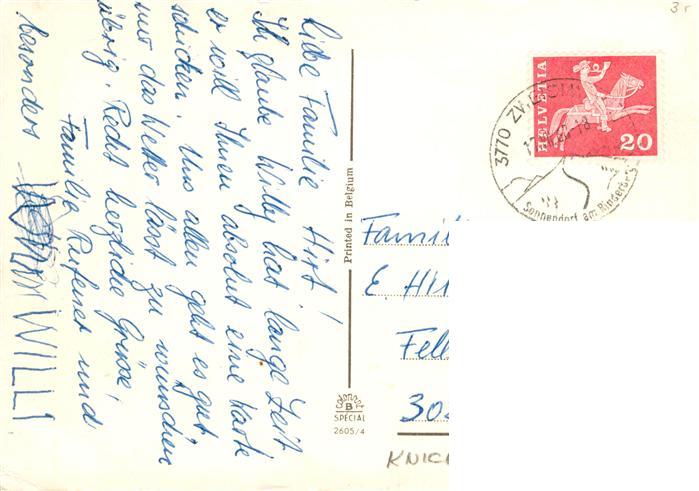 Liebe Familie Hirt!
Ich glaube Willy hat lange Zeit
er will Ihnen absolut eine Karte
schicken. Uns allen geht es gut,
nur das Wetter lässt zu wünschen
übrig. Recht herzliche Grüsse
Familie Rufener und
besonders WILLI
Printed in Belgium
colorprint
B
SPECIAL
2605/4
3r
HELVETIA
20
3770 ZWEISIMMEN
Sonnendorf am Rinderberg
Famil
E. Hir
Fel
30
KNICK